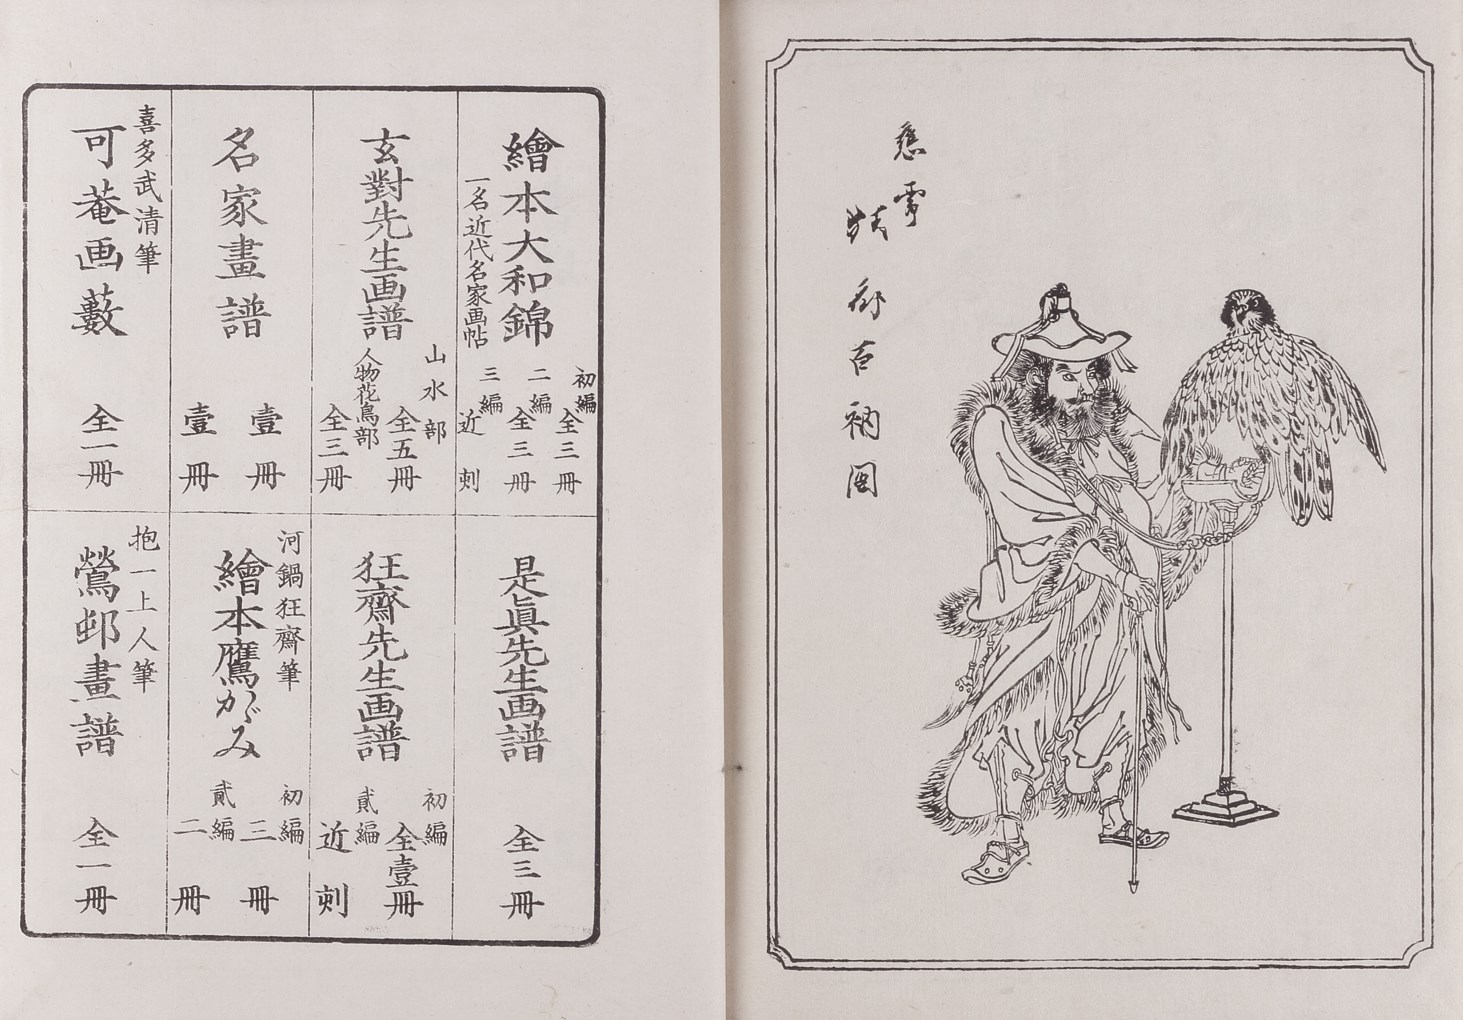 應需
古衲
繪本大和錦
一名近代名家画帖
初編 全三冊
二編 全三冊
三編 近刻
玄對先生画譜
山水部 全五冊
人物花鳥部 全三冊
名家畫譜
壹冊
壹冊
喜多武清筆
可菴画藪
全一冊
是眞先生画譜
全三冊
狂齋先生画譜
初編 全壹冊
貳編 近刻
河鍋狂齋筆
繪本鷹がみ
初編 三冊
貳編 二冊
抱一上人筆
鶯邨畫譜
全一冊